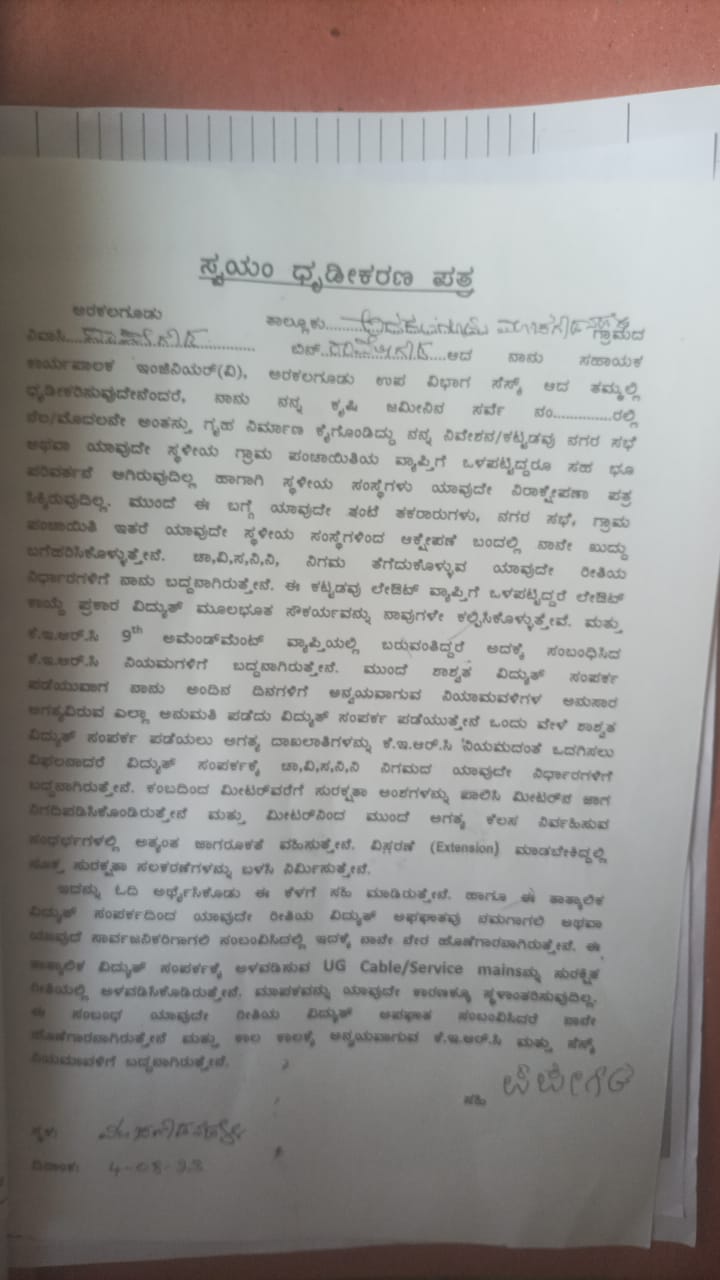 ಸ್ವಯಂ ಧೃಡೀಕರಣ ಪತ್ರ
ಅರಕಲಗೂಡು ತಾಲ್ಲೂಕು........ ಗ್ರಾಮದ
ನಿವಾಸಿ.... ಬಿನ್.... ಆದ ನಾನು ಸಹಾಯಕ
ಕಾರ್ಯಪಾಲಕ ಇಂಜಿನಿಯರ್(ವಿ), ಅರಕಲಗೂಡು ಉಪ ವಿಭಾಗ ಸೆಸ್ಕ್ ಆದ ತಮ್ಮಲ್ಲಿ
ಧೃಡೀಕರಿಸುವುದೇನೆಂದರೆ, ನಾನು ನನ್ನ ಕೃಷಿ ಜಮೀನಿನ ಸರ್ವೆ ನಂ..............ರಲ್ಲಿ
ನೆಲ/ಮೊದಲನೇ ಅಂತಸ್ತು ಗೃಹ ನಿರ್ಮಾಣ ಕೈಗೊಂಡಿದ್ದು ನನ್ನ ನಿವೇಶನ/ಕಟ್ಟಡವು ನಗರ ಸಭೆ
ಅಥವಾ ಯಾವುದೇ ಸ್ಥಳೀಯ ಗ್ರಾಮ ಪಂಚಾಯಿತಿಯ ವ್ಯಾಪ್ತಿಗೆ ಒಳಪಟ್ಟಿದ್ದರೂ ಸಹ ಭೂ
ಪರಿವರ್ತನೆ ಆಗಿರುವುದಿಲ್ಲ ಹಾಗಾಗಿ ಸ್ಥಳೀಯ ಸಂಸ್ಥೆಗಳು ಯಾವುದೇ ನಿರಾಕ್ಷೇಪಣಾ ಪತ್ರ
ಸಿಕ್ಕಿರುವುದಿಲ್ಲ. ಮುಂದೆ ಈ ಬಗ್ಗೆ ಯಾವುದೇ ತಂಟೆ ತಕರಾರುಗಳು, ನಗರ ಸಭೆ, ಗ್ರಾಮ
ಪಂಚಾಯಿತಿ ಇತರೆ ಯಾವುದೇ ಸ್ಥಳೀಯ ಸಂಸ್ಥೆಗಳಿಂದ ಆಕ್ಷೇಪಣೆ ಬಂದಲ್ಲಿ ನಾನೇ ಖುದ್ದು
ಬಗೆಹರಿಸಿಕೊಳ್ಳುತ್ತೇನೆ. ಚಾ,ವಿ,ಸ,ನಿ,ನಿ, ನಿಗಮ ತೆಗೆದುಕೊಳ್ಳುವ ಯಾವುದೇ ರೀತಿಯ
ನಿರ್ಧಾರಗಳಿಗೆ ನಾನು ಬದ್ದನಾಗಿರುತ್ತೇನೆ. ಈ ಕಟ್ಟಡವು ಲೇಔಟ್ ವ್ಯಾಪ್ತಿಗೆ ಒಳಪಟ್ಟಿದ್ದರೆ ಲೇಔಟ್
ಕಾಯ್ದೆ ಪ್ರಕಾರ ವಿದ್ಯುತ್ ಮೂಲಭೂತ ಸೌಕರ್ಯವನ್ನು ನಾವುಗಳೇ ಕಲ್ಪಿಸಿಕೊಳ್ಳುತ್ತೇವೆ. ಮತ್ತು
ಕೆ.ಇ.ಆರ್.ಸಿ 9th ಅಮೆಂಡ್‌ಮೆಂಟ್ ವ್ಯಾಪ್ತಿಯಲ್ಲಿ ಬರುವಂತಿದ್ದರೆ ಅದಕ್ಕೆ ಸಂಬಂಧಿಸಿದ
ಕೆ.ಇ.ಆರ್.ಸಿ ನಿಯಮಗಳಿಗೆ ಬದ್ದನಾಗಿರುತ್ತೇನೆ. ಮುಂದೆ ಶಾಶ್ವತ ವಿದ್ಯುತ್ ಸಂಪರ್ಕ
ಪಡೆಯುವಾಗ ನಾನು ಅಂದಿನ ದಿನಗಳಿಗೆ ಅನ್ವಯವಾಗುವ ನಿಯಾಮವಳಿಗಳ ಅನುಸಾರ
ಅಗತ್ಯವಿರುವ ಎಲ್ಲಾ ಅನುಮತಿ ಪಡೆದು ವಿದ್ಯುತ್ ಸಂಪರ್ಕ ಪಡೆಯುತ್ತೇನೆ ಒಂದು ವೇಳೆ ಶಾಶ್ವತ
ವಿದ್ಯುತ್ ಸಂಪರ್ಕ ಪಡೆಯಲು ಅಗತ್ಯ ದಾಖಲಾತಿಗಳನ್ನು ಕೆ.ಇ.ಆರ್.ಸಿ ನಿಯಮದಂತೆ ಒದಗಿಸಲು
ವಿಫಲನಾದರೆ ವಿದ್ಯುತ್ ಸಂಪರ್ಕಕ್ಕೆ ಚಾ,ವಿ,ಸ,ನಿ,ನಿ ನಿಗಮದ ಯಾವುದೇ ನಿರ್ಧಾರಗಳಿಗೆ
ಬದ್ದನಾಗಿರುತ್ತೇನೆ. ಕಂಬದಿಂದ ಮೀಟರ್‌ವರೆಗೆ ಸುರಕ್ಷತಾ ಅಂಶಗಳನ್ನು ಪಾಲಿಸಿ ಮೀಟರ್‌ನ ಜಾಗ
ನಿಗದಿಪಡಿಸಿಕೊಂಡಿರುತ್ತೇನೆ ಮತ್ತು ಮೀಟರ್‌ನಿಂದ ಮುಂದೆ ಅಗತ್ಯ ಕೆಲಸ ನಿರ್ವಹಿಸುವ
ಸಂಧರ್ಭಗಳಲ್ಲಿ ಅತ್ಯಂತ ಜಾಗರೂಕತೆ ವಹಿಸುತ್ತೇನೆ. ವಿಸ್ತರಣೆ (Extension) ಮಾಡಬೇಕಿದ್ದಲ್ಲಿ
ಸೂಕ್ತ ಸುರಕ್ಷತಾ ಸಲಕರಣೆಗಳನ್ನು ಬಳಸಿ ನಿರ್ಮಿಸುತ್ತೇನೆ.
ಇದನ್ನು ಓದಿ ಅರ್ಥೈಸಿಕೊಡು ಈ ಕೆಳಗೆ ಸಹಿ ಮಾಡಿರುತ್ತೇನೆ. ಹಾಗೂ ಈ ತಾತ್ಕಾಲಿಕ
ವಿದ್ಯುತ್ ಸಂಪರ್ಕದಿಂದ ಯಾವುದೇ ರೀತಿಯ ವಿದ್ಯುತ್ ಅಫಘಾತವು ನಮಗಾಗಲಿ ಅಥವಾ
ಯಾವುದೆ ಸಾರ್ವಜನಿಕರಿಗಾಗಲಿ ಸಂಬಂವಿಸಿದಲ್ಲಿ ಇದಕ್ಕೆ ನಾನೇ ನೇರ ಹೊಣೆಗಾರನಾಗಿರುತ್ತೇನೆ. ಈ
ತಾತ್ಕಾಲಿಕ ವಿದ್ಯುತ್ ಸಂಪರ್ಕಕ್ಕೆ ಅಳವಡಿಸುವ UG Cable/Service mainsನ್ನು ಸುರಕ್ಷಿತ
ರೀತಿಯಲ್ಲಿ ಅಳವಡಿಸಿಕೊಡಿರುತ್ತೇನೆ. ಮಾಪಕವನ್ನು ಯಾವುದೇ ಕಾರಣಕ್ಕೂ ಸ್ಥಳಾಂತರಿಸುವುದಿಲ್ಲ.
ಈ ಸಂಬಂಧ ಯಾವುದೇ ರೀತಿಯ ವಿದ್ಯುತ್ ಅಪಘಾತ ಸಂಬಂವಿಸಿದರೆ ನಾನೇ
ಹೊಣೆಗಾರನಾಗಿರುತ್ತೇನೆ ಮತ್ತು ಕಾಲ ಕಾಲಕ್ಕೆ ಅನ್ವಯವಾಗುವ ಕೆ.ಇ.ಆರ್.ಸಿ ಮತ್ತು ಸೆಸ್ಕ್
ನಿಯಮಾವಳಿಗೆ ಬದ್ದನಾಗಿರುತ್ತೇನೆ.
ಸಹಿ
ಸ್ಥಳ:
ದಿನಾಂಕ: 4-08-23